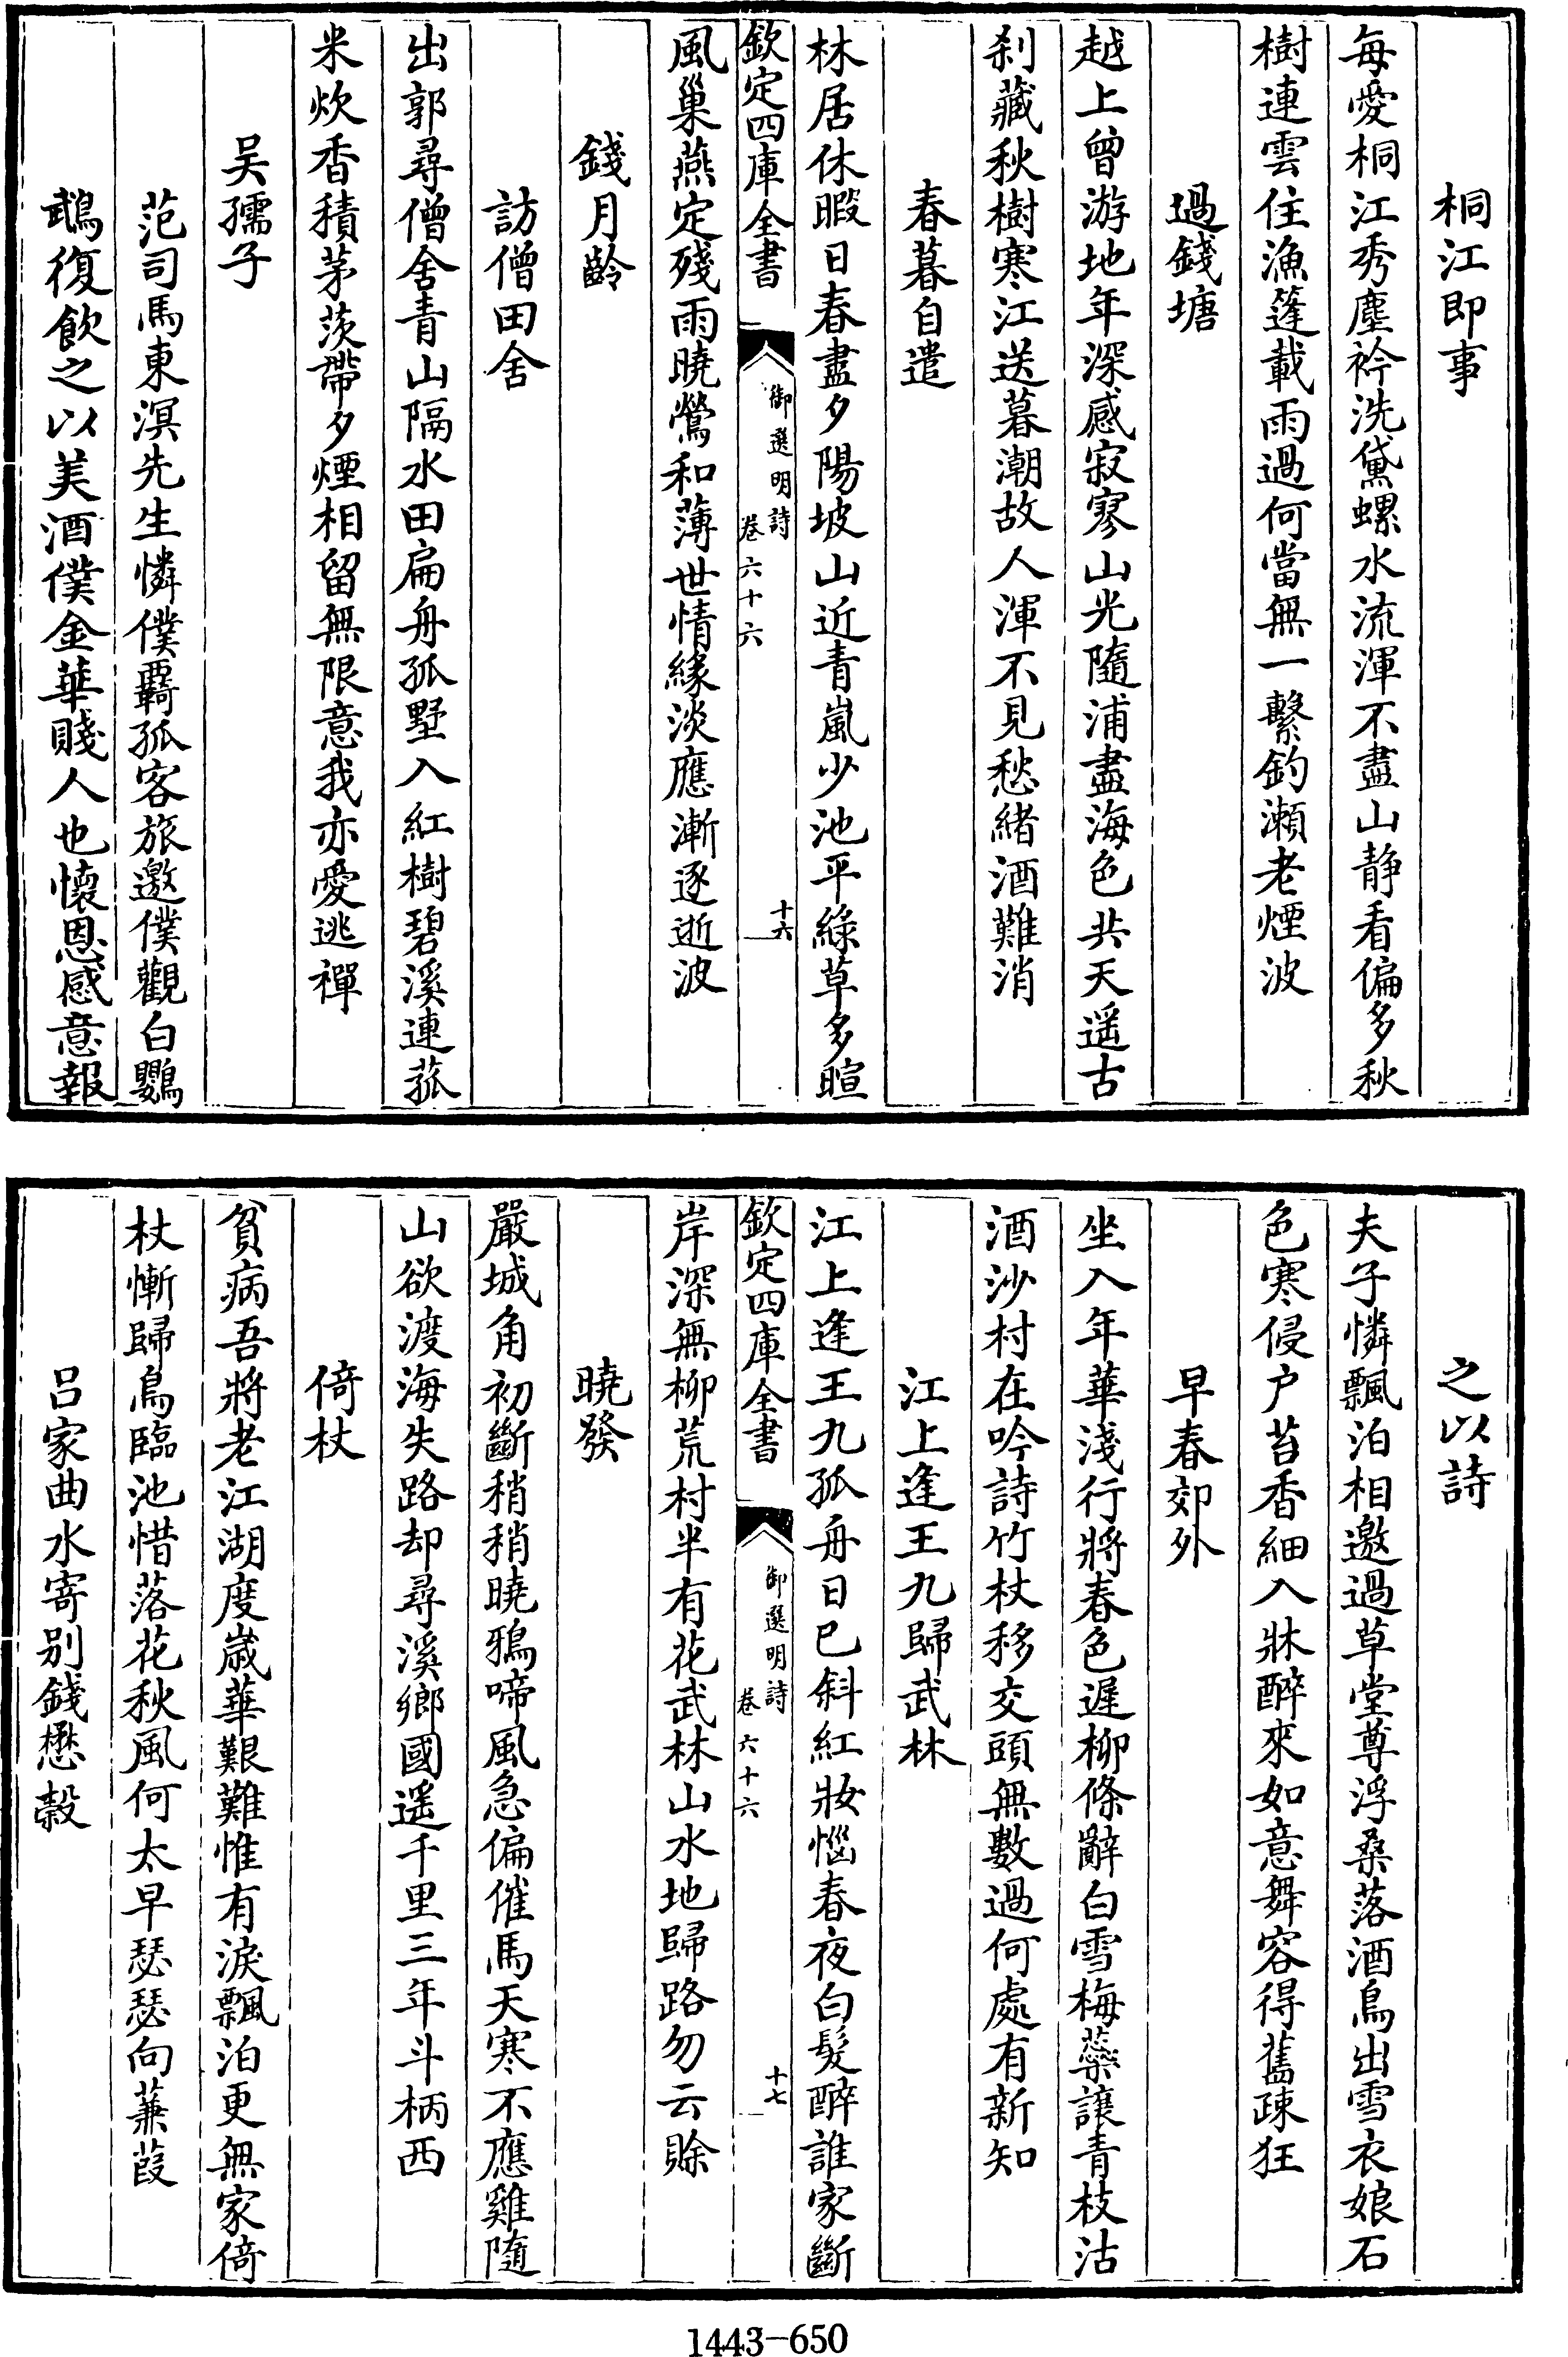 桐江即事
每愛桐江秀塵衿洗黛螺水流渾不盡山静看偏多秋
樹連雲住漁篷載雨過何當無一繫釣瀨老煙波
過錢塘
越上曾游地年深感寂寥山光隨浦盡海色共天遥古
刹藏秋樹寒江送暮潮故人渾不見愁緒酒難消
春暮自遣
林居休暇日春盡夕陽坡山近青嵐少池平綠草多暄
欽定四庫全書
御選明詩
卷六十六
十六
風巢燕定殘雨曉鶯和薄世情緣淡應漸逐逝波
錢月齡
訪僧田舍
出郭尋僧舍青山隔水田扁舟孤墅入紅樹碧溪連菰
米炊香積茅茨帶夕煙相留無限意我亦愛逃禪
吴孺子
范司馬東溟先生憐僕覊孤客旅邀僕觀白鸚
鵡復飲之以美酒僕金華賤人也懷恩感意報
之以詩
夫子憐飄泊相邀過草堂尊浮桑落酒鳥出雪衣娘石
色寒侵户苔香細入牀醉來如意舞容得舊疎狂
早春郊外
坐入年華淺行將春色遲柳條辭白雪梅蘂讓青枝沽
酒沙村在吟詩竹杖移交頭無數過何處有新知
江上逢王九歸武林
江上逢王九孤舟日已斜紅妝惱春夜白髮醉誰家斷
欽定四庫全書
御選明詩
卷六十六
十七
岸深無柳荒村半有花武林山水地歸路勿云賒
曉發
嚴城角初斷稍稍曉鴉啼風急偏催馬天寒不應雞隨
山欲渡海失路却尋溪鄉國遥千里三年斗柄西
倚杖
貧病吾將老江湖度歲華艱難惟有淚飄泊更無家倚
杖慚歸鳥臨池惜落花秋風何太早瑟瑟向蒹葭
吕家曲水寄别錢懋穀
1443-650